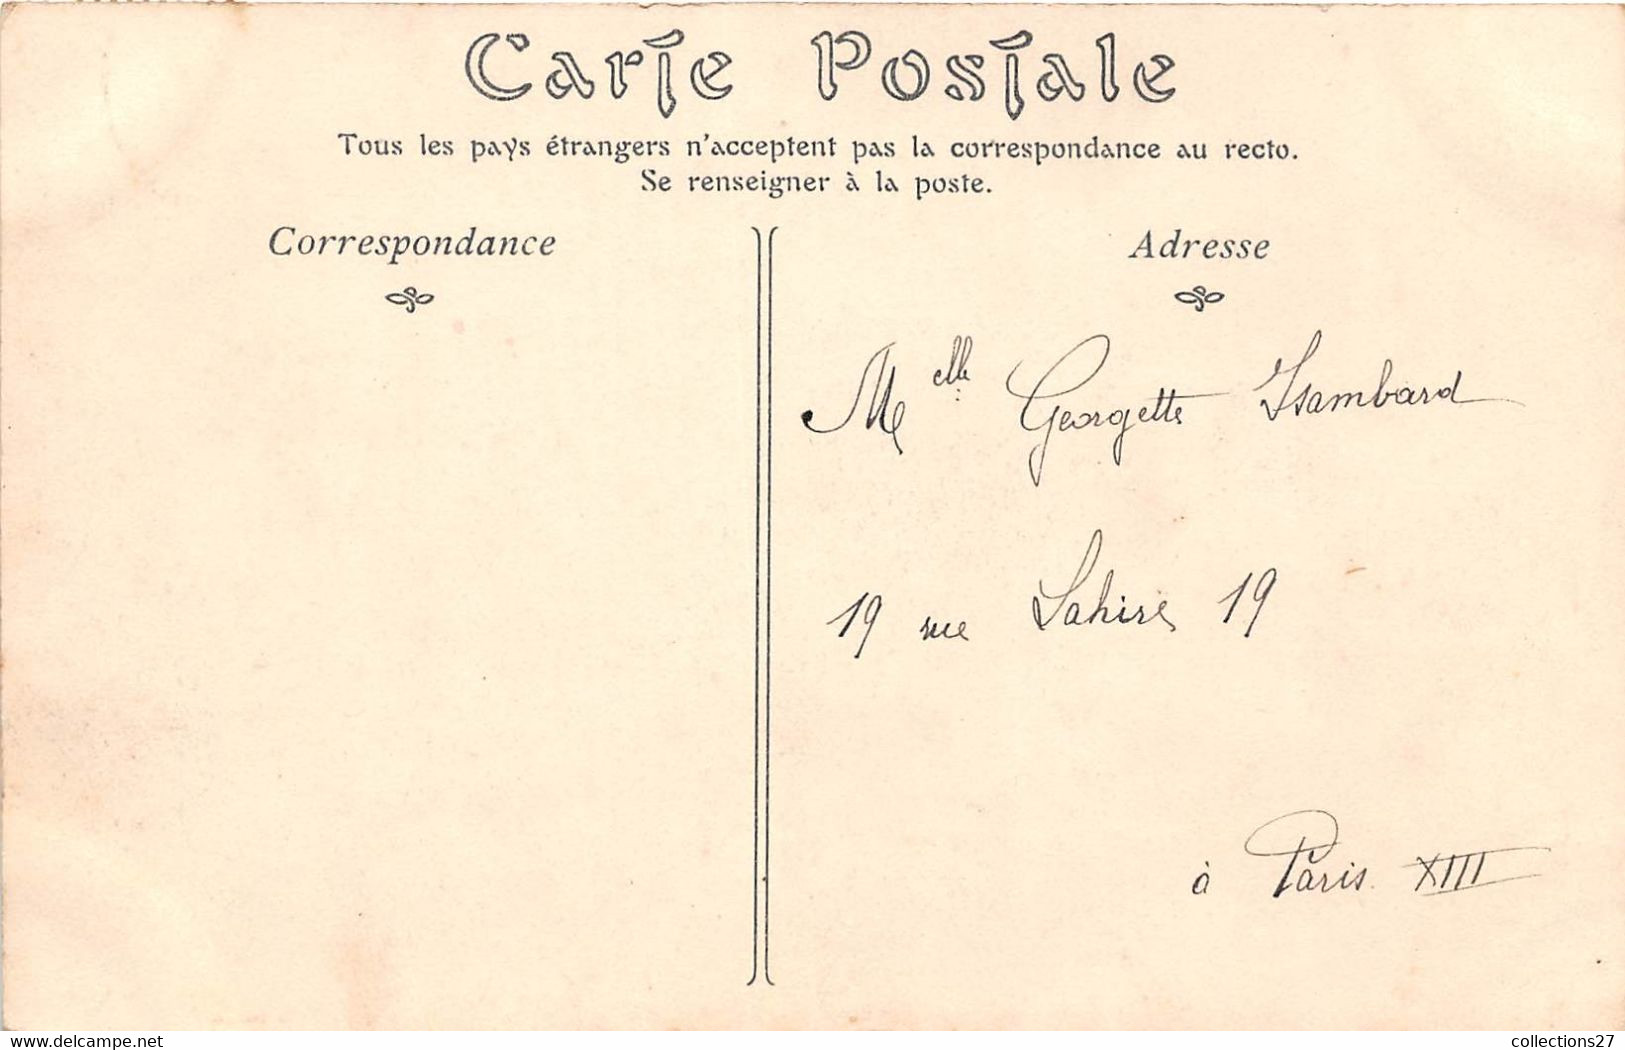 Carte Postale
Tous les pays étrangers n'acceptent pas la correspondance au recto.
Se renseigner à la poste.
Correspondance
Adresse
Melle Georgette Isambard
19 rue Lahire 19
à Paris XIII
www.delcampe.net
collections27